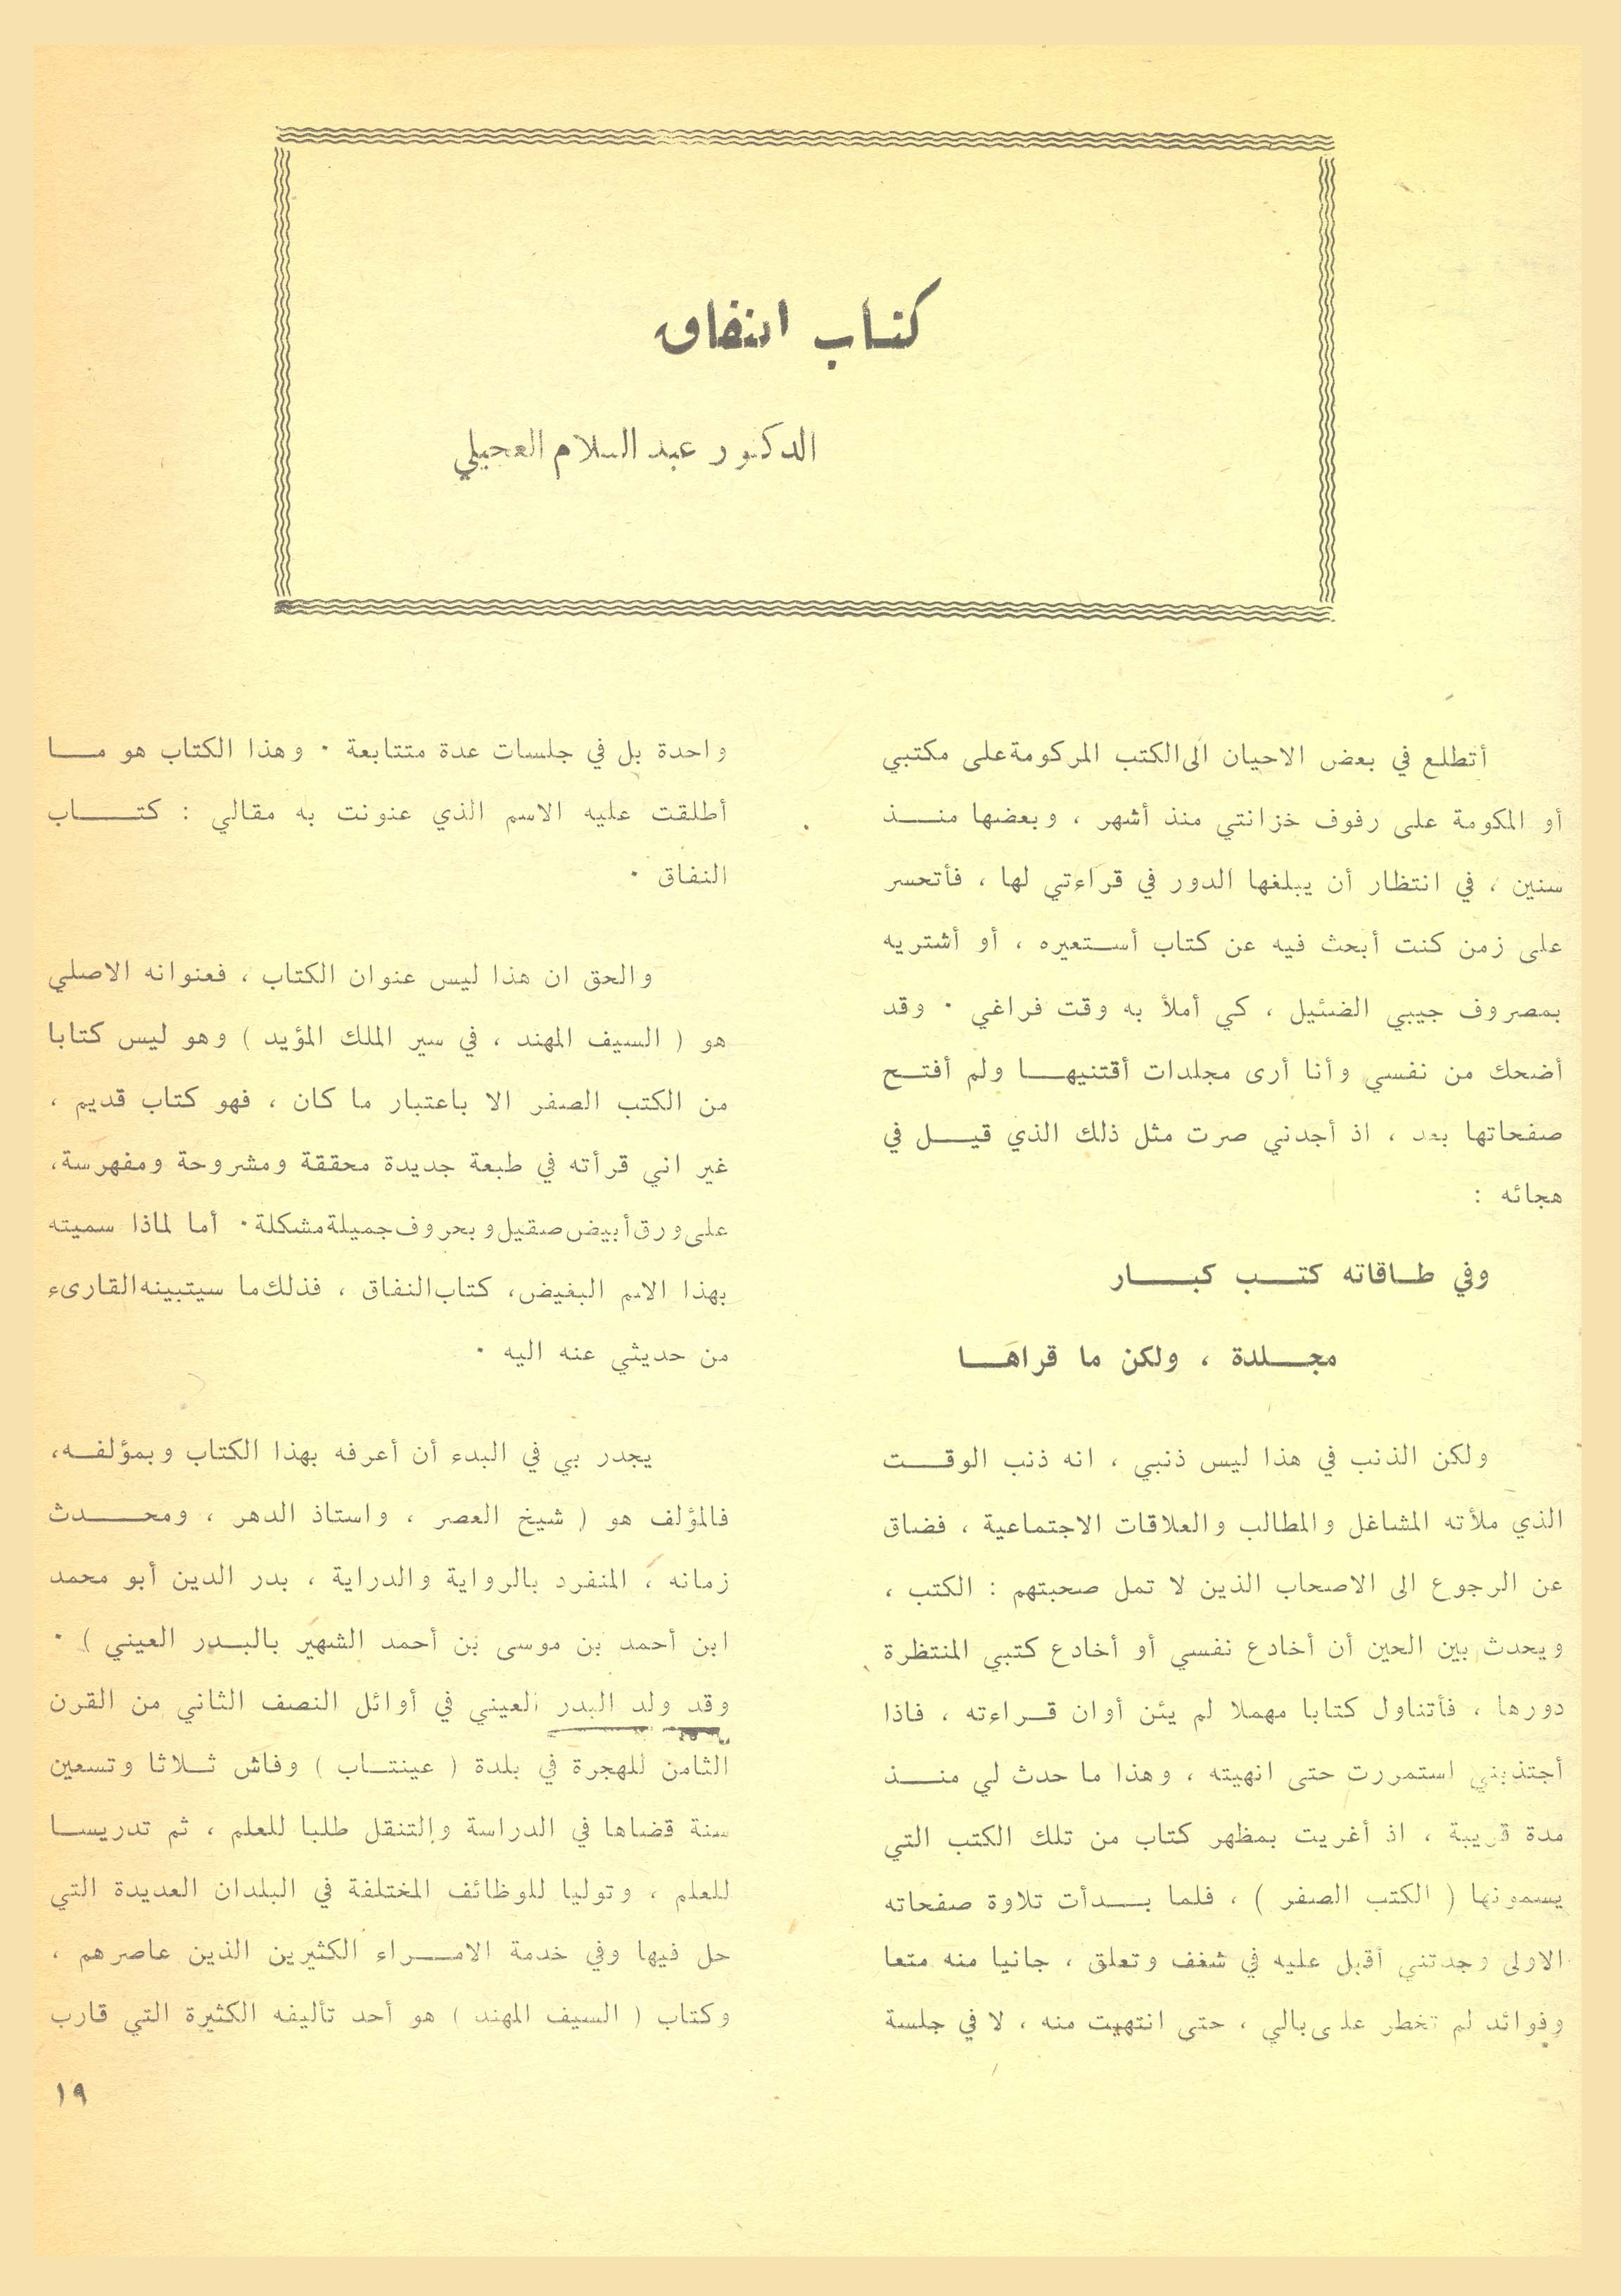 كتاب النفاق
الدكتور عبد السلام العجيلي
أتطلع في بعض الاحيان الى الكتب المركومة على مكتبي
أو المكومة على رفوف خزانتي منذ أشهر ، وبعضها منذ
سنين ، في انتظار أن يبلغها الدور في قراءتي لها ، فأتحسر
على زمن كنت أبحث فيه عن كتاب أستعيره ، أو أشتريه
بمصروف جيبي الضئيل ، كي أملأ به وقت فراغي . وقد
أضحك من نفسي وأنا أرى مجلدات أقتنيها ولم أفتح
صفحاتها بعد ، اذ أجدني صرت مثل ذلك الذي قيل في
هجائه :
وفي طاقاته كتب كبار
مجلدة ، ولكن ما قراها
ولكن الذنب في هذا ليس ذنبي ، انه ذنب الوقت
الذي ملأته المشاغل والمطالب والعلاقات الاجتماعية ، فضاق
عن الرجوع الى الاصحاب الذين لا تمل صحبتهم : الكتب ،
ويحدث بين الحين أن أخادع نفسي أو أخادع كتبي المنتظرة
دورها ، فأتناول كتابا مهملا لم يئن أوان قراءته ، فاذا
أجتذبني استمررت حتى انهيته ، وهذا ما حدث لي منذ
مدة قريبة ، اذ أغريت بمظهر كتاب من تلك الكتب التي
يسمونها ( الكتب الصفر ) ، فلما بدأت تلاوة صفحاته
الاولى وجدتني أقبل عليه في شغف وتعلق ، جانيا منه متعا
وفوائد لم تخطر على بالي ، حتى انتهيت منه ، لا في جلسة
واحدة بل في جلسات عدة متتابعة . وهذا الكتاب هو ما
أطلقت عليه الاسم الذي عنونت به مقالي : كتاب
النفاق .
والحق ان هذا ليس عنوان الكتاب ، فعنوانه الاصلي
هو ( السيف المهند ، في سير الملك المؤيد ) وهو ليس كتابا
من الكتب الصفر الا باعتبار ما كان ، فهو كتاب قديم ،
غير اني قرأته في طبعة جديدة محققة ومشروحة ومفهرسة،
على ورق أبيض صقيل وبحروف جميلة مشكلة . أما لماذا سميته
بهذا الاسم البغيض، كتاب النفاق ، فذلك ما سيتبينه القارىء
من حديثي عنه اليه .
يجدر بي في البدء أن أعرفه بهذا الكتاب وبمؤلفه،
فالمؤلف هو ( شيخ العصر ، واستاذ الدهر ، ومحدث
زمانه ، المنفرد بالرواية والدراية ، بدر الدين أبو محمد
ابن أحمد بن موسى بن أحمد الشهير بالبدر العيني ) .
وقد ولد البدر العيني في أوائل النصف الثاني من القرن
الثامن للهجرة في بلدة ( عينتاب ) وفاش ثلاثا وتسعين
سنة قضاها في الدراسة والتنقل طلبا للعلم ، ثم تدريسا
للعلم ، وتوليا للوظائف المختلفة في البلدان العديدة التي
حل فيها وفي خدمة الامراء الكثيرين الذين عاصرهم ،
وكتاب ( السيف المهند ) هو أحد تأليفه الكثيرة التي قارب
١٩